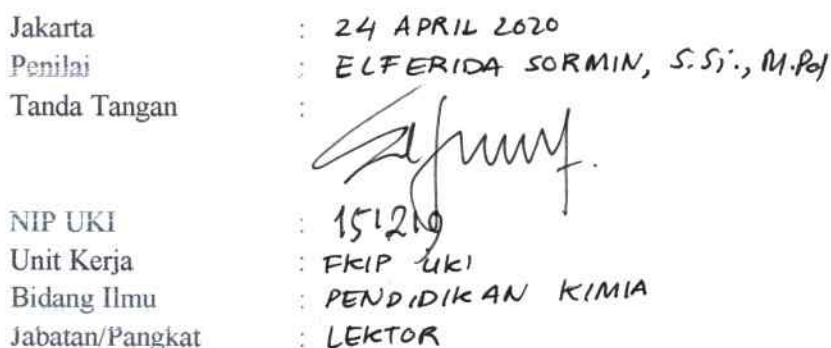 Jakarta : 24 APRIL 2020
Penilai : ELFERIDA SORMIN, S.Si., M.Pd
Tanda Tangan :
NIP UKI : 151219
Unit Kerja : FKIP UKI
Bidang Ilmu : PENDIDIKAN KIMIA
Jabatan/Pangkat : LEKTOR